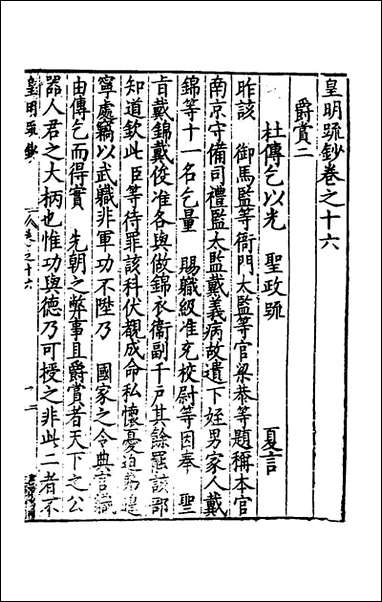 皇明疏鈔卷之十六
爵賞二
杜傳乞以光 聖政疏 夏言
昨該 御馬監等衙門太監等官梁恭等題稱本官
南京守備司禮監太監戴義病故遺下姪男家人戴
錦等十一名乞量 賜職級准充校尉等因奉 聖
旨戴錦戴俊准各與做錦衣衛副千戶其餘罷該部
知道欽此臣等待罪該科伏覩成命私懷憂迫弗遑
寧處竊以武職非軍功不陞乃 國家之令典言職
由傳乞而得實 先朝之弊事且爵賞者天下之公
器人君之大柄也惟功與德乃可授之非此二者不
皇明疏鈔 卷之十六 一